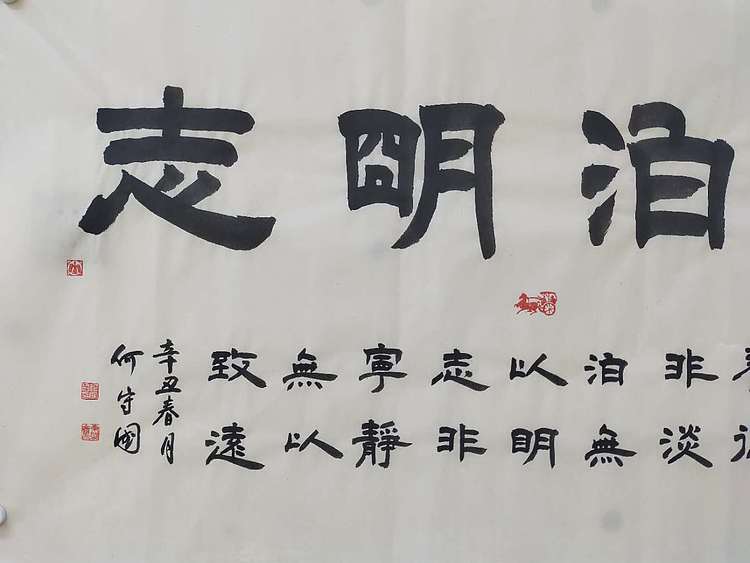 泊明志
非淡
泊無
以明
志非
寧靜
無以
致遠
辛丑春月
何守國